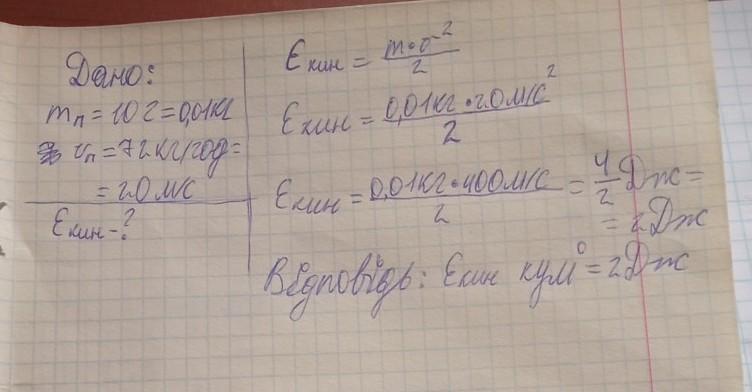 Дано:
mп = 10 г = 0,01 кг
vп = 72 кг/год =
= 20 м/с
Eкин - ?
Eкин = m·v²/2
Eкин = 0,01 кг · 20 м/с²/2
Eкин = 0,01 кг · 400 м/с/2 = 4/2 Дж =
= 2 Дж
Відповідь: Eкин кулі = 2 Дж